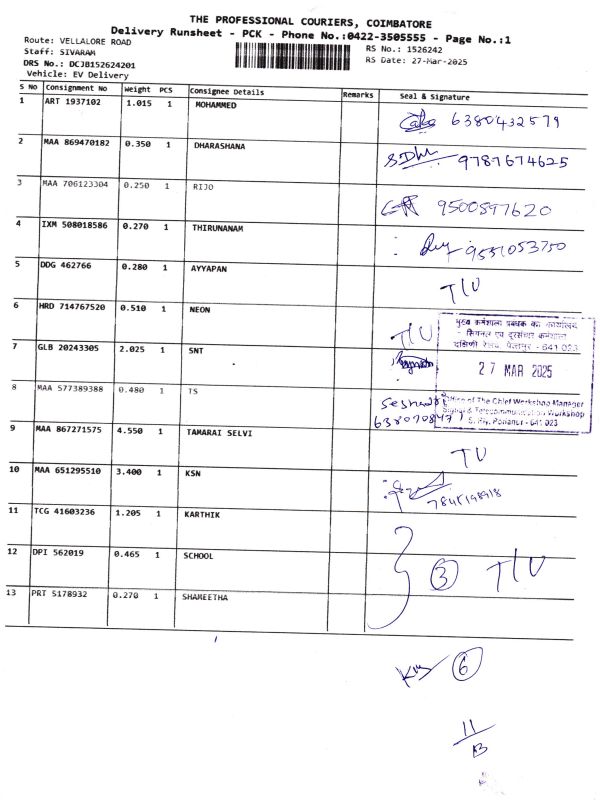 THE PROFESSIONAL COURIERS, COIMBATORE
Delivery Runsheet - PCK - Phone No.:0422-3505555 - Page No.:1
Route: VELLALORE ROAD
Staff: SIVARAM
DRS No.: DCJB152624201
Vehicle: EV Delivery
RS No.: 1526242
RS Date: 27-Mar-2025
S No Consignment No Weight PCS Consignee Details Remarks Seal & Signature
1 ART 1937102 1.015 1 MOHAMMED 6380432579
2 MAA 869470182 0.350 1 DHARASHANA 9787674625
3 MAA 706123304 0.250 1 RIJO 9500597620
4 IXM 508018586 0.270 1 THIRUNANAM
5 DDG 462766 0.280 1 AYYAPAN T/U
6 HRD 714767520 0.510 1 NEON T/U
7 GLB 20243305 2.025 1 SNT
मुख्य कर्मशाला प्रबंधक का कार्यालय
सिगनल एवं दूरसंचार कर्मशाला
दक्षिणी रेलवे, पोत्तनुर - 641 023
27 MAR 2025
Office of The Chief Workshop Manager
Signal & Telecommunication Workshop
S. Rly, Podanur - 641 023
8 MAA 577389388 0.480 1 TS
9 MAA 867271575 4.550 1 TAMARAI SELVI TU
10 MAA 651295510 3.400 1 KSN
11 TCG 41603236 1.205 1 KARTHIK
12 DPI 562019 0.465 1 SCHOOL 3 T/U
13 PRT 5178932 0.270 1 SHAMEETHA
6
11
13